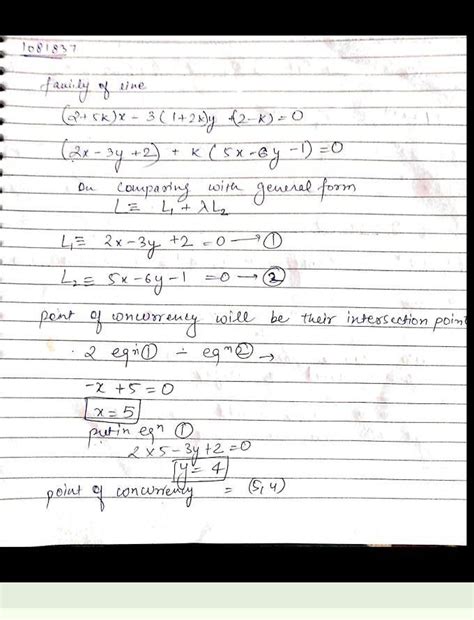 1081837
family of line
(2+5k)x - 3(1+2k)y +(2-k)=0
(2x-3y+2) + k(5x-6y-1)=0
On comparing with general form
L≡ L₁+λL₂
L₁≡ 2x-3y+2=0 → ①
L₂≡ 5x-6y-1 =0 → ②
point of concurrency will be their intersection point
2 eqⁿ① - eqⁿ② →
-x+5=0
x=5
put in eqⁿ ①
2×5-3y+2=0
y=4
point of concurrency = (5,4)